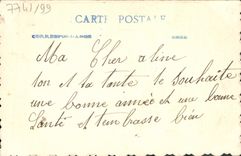 7741/99
CARTE POSTALE
CORRESPONDANCE
Ma Cher aline
ton et la tante te souhaite
une bonne année et une bonne
Santé et tembrasse bien